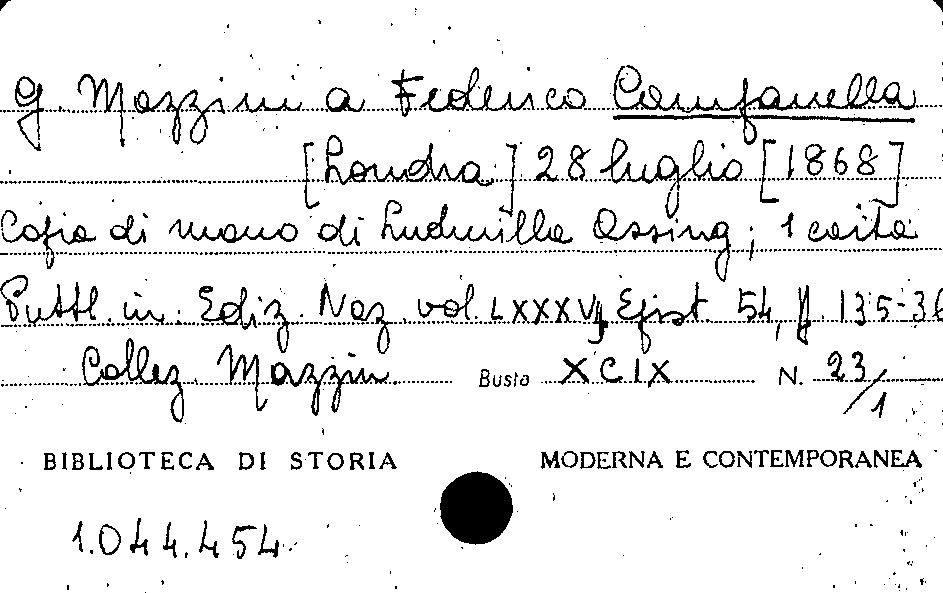 G. Mazzini a Federico Campanella
[Londra] 28 luglio [1868]
Copia di mano di Ludmilla Assing; 1 carta
Pubbl. in: Ediz. Naz. vol. LXXXVIJ, Epist. 54, pp. 135-36
Collez. Mazzini Busta XCIX N. 23/1
BIBLIOTECA DI STORIA MODERNA E CONTEMPORANEA
1.044.454